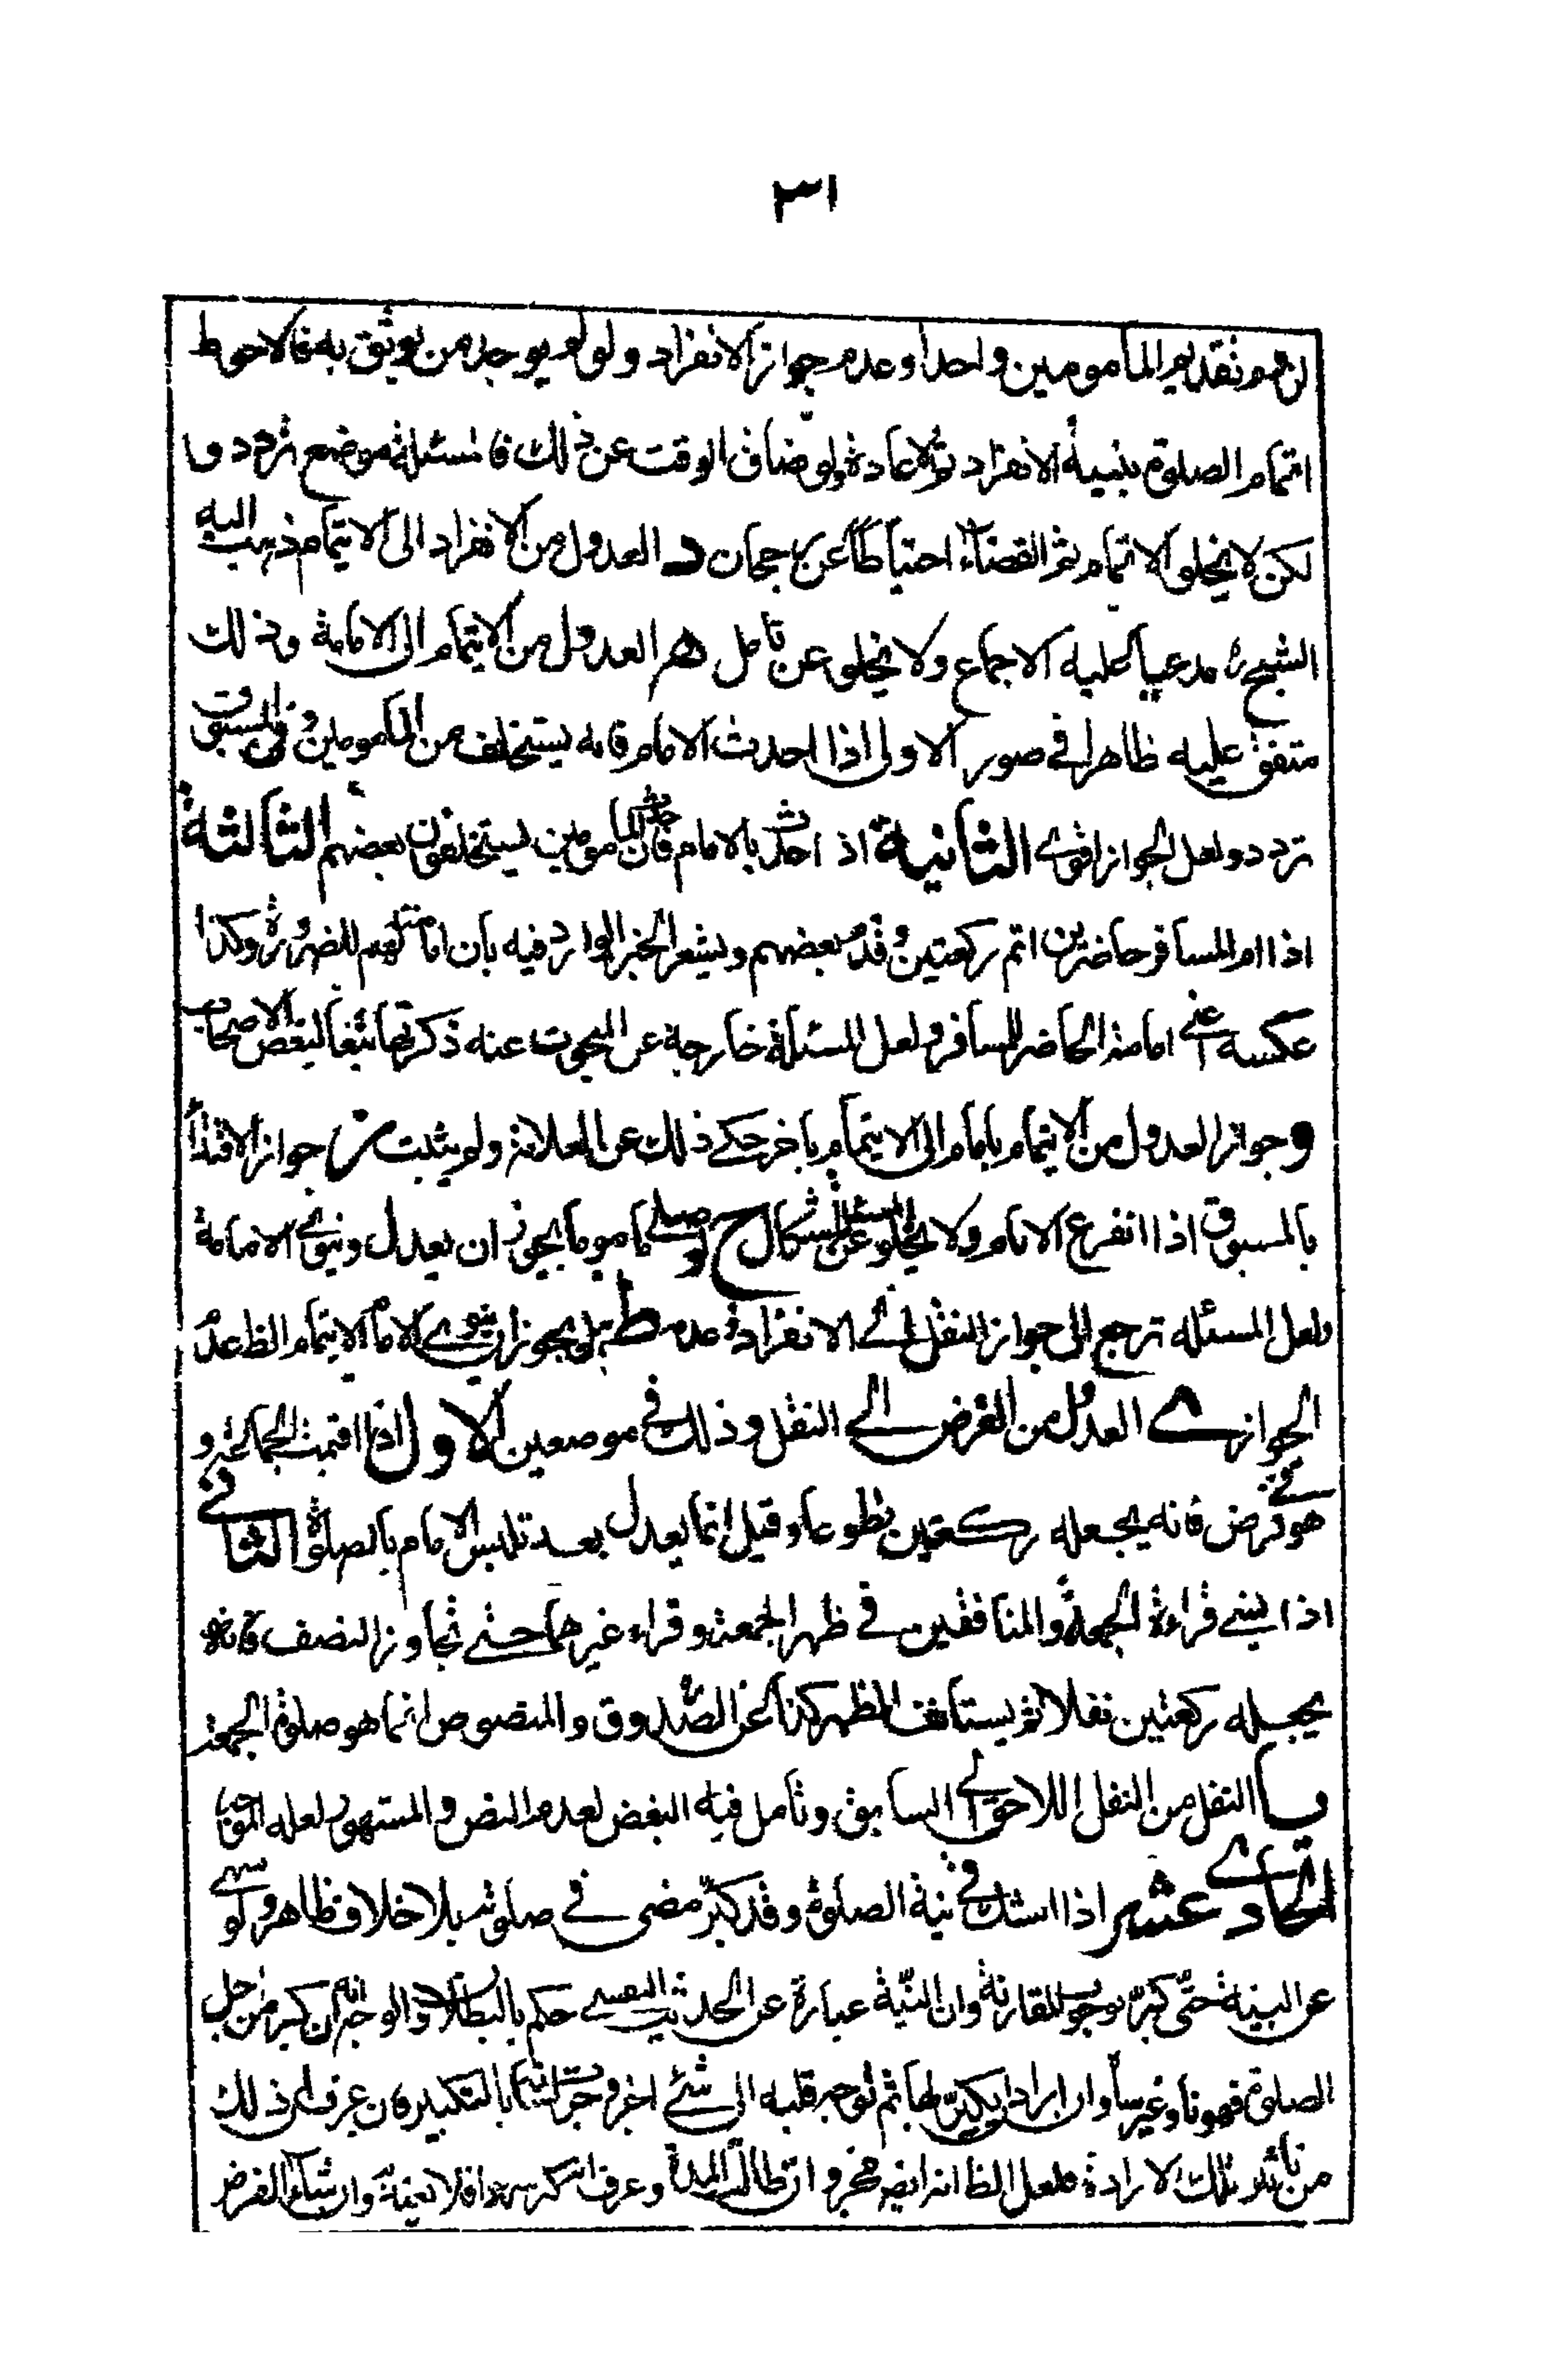 ٣١
لزوم تقديم المأمومين واحدا وعدم جواز الانفراد ولو لم يوجد من يوثق به فالاحوط
اتمام الصلوة بنية الانفراد ثم الاعادة ولو ضاق الوقت عن ذلك فالمسئلة موضع تردد
لكن لا يخلو الاتمام ثم القضاء احتياطا عن رجحان د العدول من الانفراد الى الايتمام ذهب اليه
الشيخ ره مدعيا عليه الاجماع ولا يخلو عن تامل ه العدول من الايتمام الى الامامة وذلك
متفق عليه ظاهرا في صور الاولى اذا احدث الامام فانه يستخلف من المأمومين وفى المسبوق
تردد ولعل الجواز اقوى الثانية اذ احدث بالامام حدث فان المأمومين يستخلفون بعضهم الثالثة
اذا ام المسافر حاضرين اتم ركعتين وقدم بعضهم ويشعر الخبر الوارد فيه بأن امامته لهم للضرورة وكذا
عكسه اعني امامة الحاضر للمسافر ولعل المسئلة خارجة عن المبحوث عنه ذكرتها تبعا لبعض الاصحاب
و جواز العدول من الايتمام بامام الى الايتمام باخر حكي ذلك عن العلامة ولو يثبت جواز الاقتداء
بالمسبوق اذا انفرع الامام ولا يخلو المسئلة عن اشكال ح لو صلى ماموما يجوز ان يعدل وينوى الامامة
ولعل المسئله ترجع الى جواز النقل الى الانفراد وعدمه ط هل يجوز ان ينوي الامام الايتمام الظ عدم
الجواز ى العدول من الفرض الى النفل وذلك في موضعين الاول اذا اقيمت الجماعة و
هو في فرض فانه يجعله ركعتين تطوعا وقيل انما يعدل بعد تلبس الامام بالصلوة الثانى
اذا نسي قراءة الجمعة والمنافقين في ظهر الجمعة وقراء غيرهما حتى تجاوز النصف فانه
يجعله ركعتين نفلا ثم يستأنف الظهر كذا عن الصدوق والمنصوص انما هو صلوة الجمعة
يا النقل من النفل اللاحق الى السابق وتامل فيه البعض لعدم النص والمشهور لعله الجواز
الحادي عشر اذا اشك في نية الصلوة وقد كبر مضى في صلوته بلا خلاف ظاهر ولو سهى
عن النية حتى كبر بوجوب المقارنة وان النية عبارة عن الحديث النفسي حكم بالبطلان والوجه انه ان كبر من اجل
الصلوة فهو ناو غير ساه وان اراد ان يكبر لها ثم توجه قلبه الى شئ اخر وجرى لسانه بالتكبير فان عرف ان ذلك
من تاثير تلك الارادة فلعل الظ انه ايضا مجز وان طالت المدة وعرف انه كبر سهوا فلا نية وان شاء الفرض